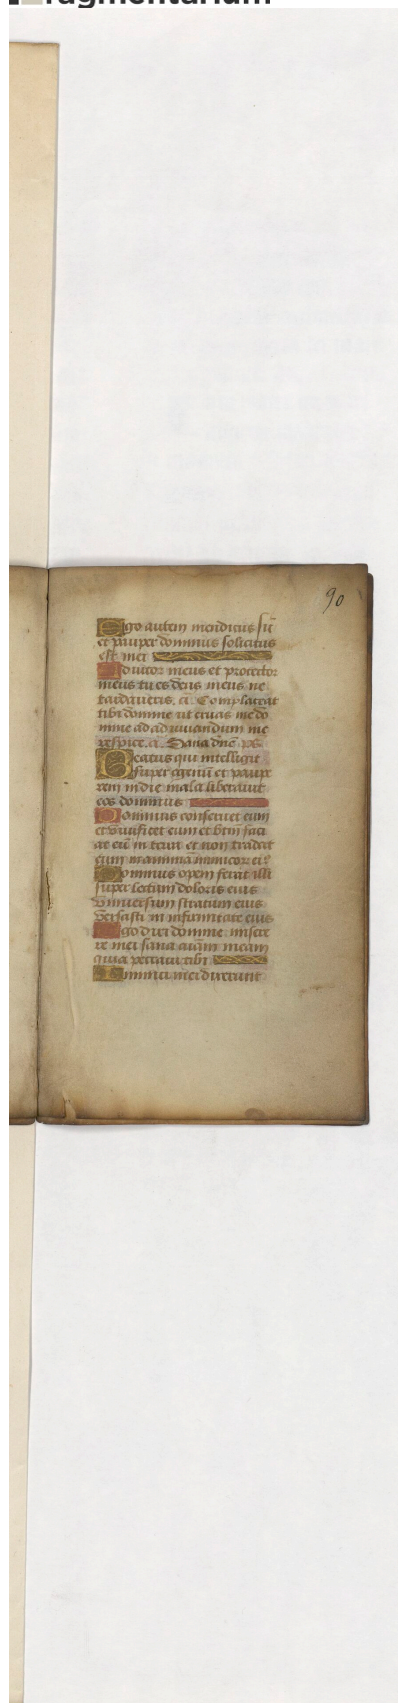 ragmentarium
90
Ego autem mendicus sū
et pauper dominus solicitus
est mei
Adiutor meus et protector
meus tu es deus meus ne
tardaueris. a. Complaceat
tibi domine ut eruas me do
mine ad adiuuandum me
respice. a. Sana dn̄e ps
Beatus qui intelligit
super egenū et paupe
rem in die mala liberauit
eos dominus
Dominus conseruet eum
et viuificet eum et btm̄ faci
at eū in terra et non tradat
eum in animā inimicor ei9
Dominus opem ferat illi
super lectum doloris eius
vniuersum stratum eius
versasti in infirmitate eius
Ego dixi domine misere
re mei sana aīam meam
quia peccaui tibi
Inimici mei dixerunt